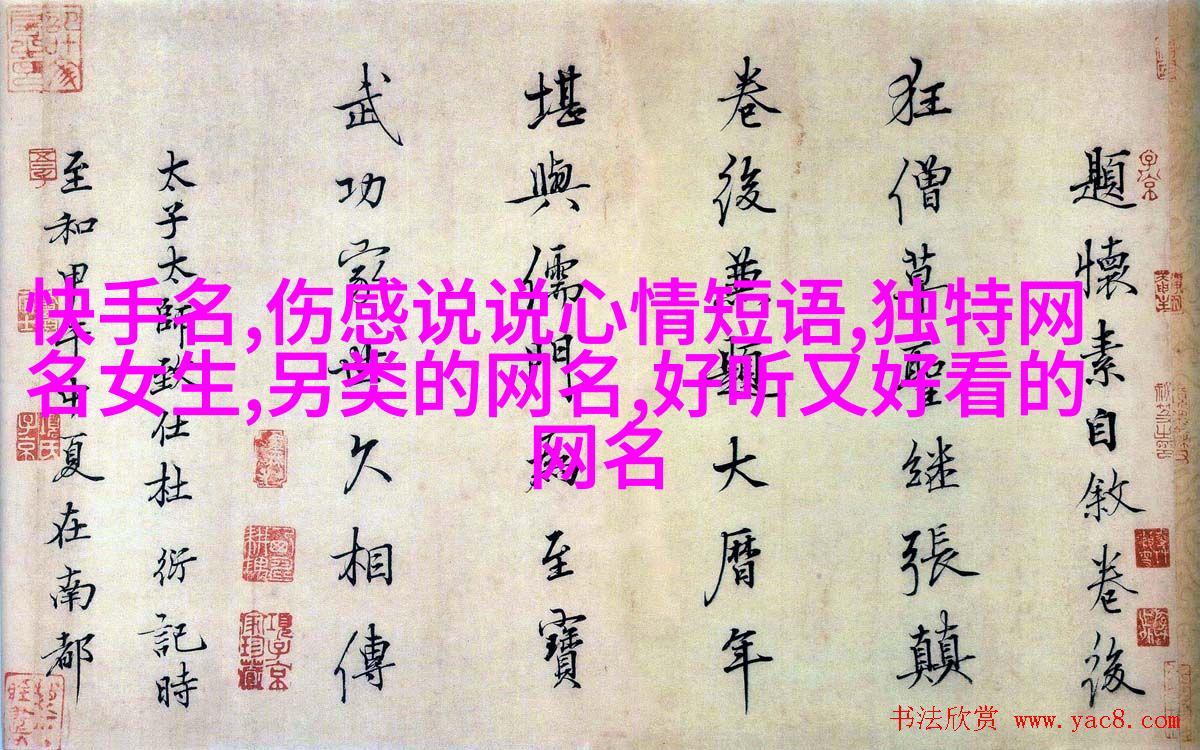 题懷素自敘卷後
狂僧草聖继張顛
卷後兼題大曆年
堪與儒門為至寶
武功家世久相傳
太子太師致仕杜 衍記時
至和甲午中夏在南都
快手名,伤感说说心情短语,独特网
名女生,另类的网名,好听又好看的
网名
书法欣赏 www.yac8.com